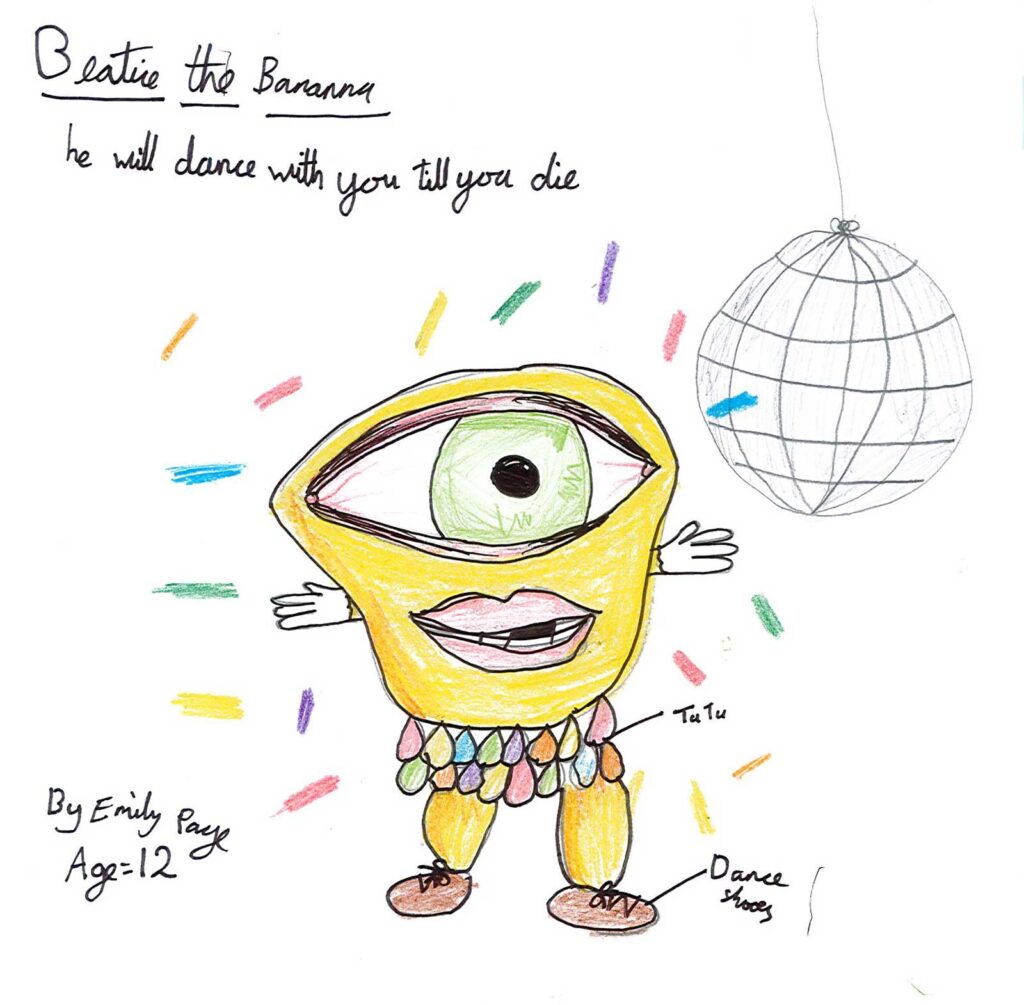 Beatrice the Bananna
he will dance with you till you die
TuTu
By Emily Page
Age=12
Dance
shoes